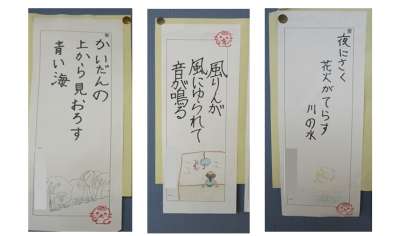 かいだんの
上から見おろす
青い海
風りんが
風にゆられて
音が鳴る
夜にさく
花火がてらす
川の水